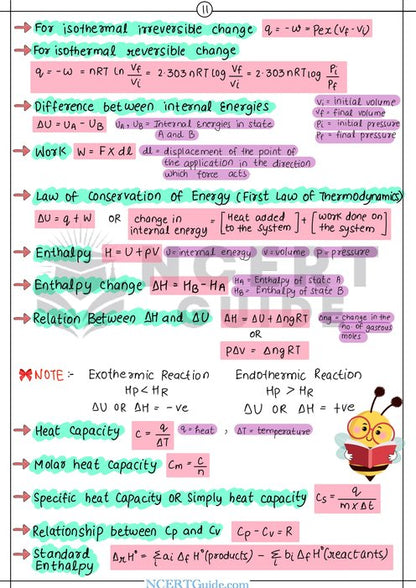 11
→ For isothermal irreversible change q = -w = Pex (Vf - Vi)
→ For isothermal reversible change
q = -w = nRT ln Vf/Vi = 2.303 nRT log Vf/Vi = 2.303 nRT log Pi/Pf
→ Difference between internal energies
ΔU = UA - UB
UA, UB = Internal Energies in state
A and B
Vi = initial volume
Vf = final volume
Pi = initial pressure
Pf = final pressure
→ Work W = F x dl
dl = displacement of the point of
the application in the direction
which force acts
→ Law of Conservation of Energy (First Law of Thermodynamics)
ΔU = q + W OR change in internal energy = [Heat added to the system] + [work done on the system]
→ Enthalpy H = U + PV U = internal energy V = volume P = pressure
→ Enthalpy change ΔH = HB - HA
HA = Enthalpy of state A
HB = Enthalpy of state B
→ Relation Between ΔH and ΔU ΔH = ΔU + Δng RT
OR
PΔV = Δng RT
Δng = change in the
no. of gaseous
moles
NOTE :-
Exothermic Reaction
HP < HR
ΔU OR ΔH = -ve
Endothermic Reaction
HP > HR
ΔU OR ΔH = +ve
→ Heat Capacity C = q/ΔT q = heat , ΔT = temperature
→ Molar heat capacity Cm = C/n
→ Specific heat Capacity OR Simply heat capacity Cs = q/m x Δt
→ Relationship between Cp and Cv Cp - Cv = R
→ Standard
Enthalpy
ΔrH° = Σi ai ΔfH°(products) - Σi bi ΔfH°(reactants)
NCERT
GUIDE
NCERTGuide.com